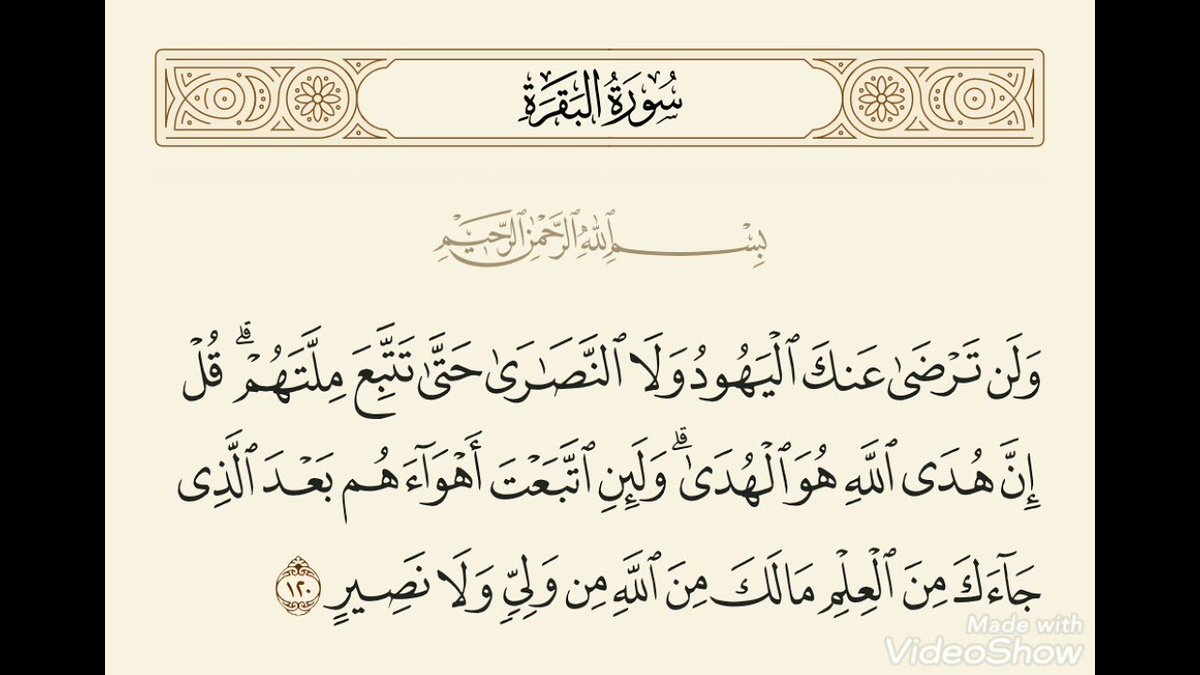 سُورَةُ البَقَرَةِ
بِسْمِ ٱللَّهِ ٱلرَّحْمَٰنِ ٱلرَّحِيمِ
وَلَن تَرْضَىٰ عَنكَ ٱلْيَهُودُ وَلَا ٱلنَّصَـٰرَىٰ حَتَّىٰ تَتَّبِعَ مِلَّتَهُمْ ۗ قُلْ
إِنَّ هُدَى ٱللَّهِ هُوَ ٱلْهُدَىٰ ۗ وَلَئِنِ ٱتَّبَعْتَ أَهْوَآءَهُم بَعْدَ ٱلَّذِى
جَآءَكَ مِنَ ٱلْعِلْمِ مَا لَكَ مِنَ ٱللَّهِ مِن وَلِىٍّ وَلَا نَصِيرٍ ١٢٠
Made with
VideoShow